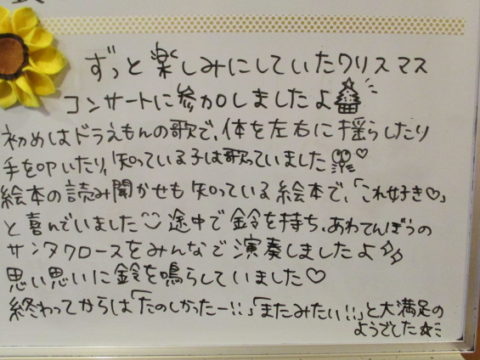 ずっと楽しみにしていたクリスマス
コンサートに参加しましたよ
初めはドラえもんの歌で、体を左右に揺らしたり
手を叩いたり、知っている子は歌っていました♡
絵本の読み聞かせも知っている絵本で、「これ好き♡」
と喜んでいました 途中で鈴を持ち、あわてんぼうの
サンタクロースをみんなで演奏しましたよ
思い思いに鈴を鳴らしていました♡
終わってからは「たのしかったー!!」「またみたい!!」と大満足の
ようでした☆